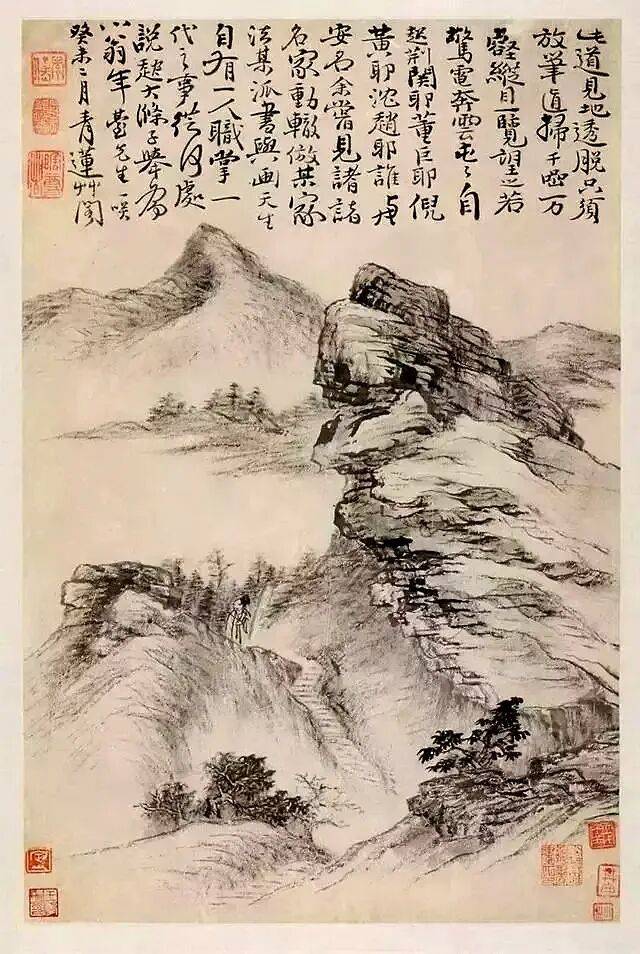 此道見地透脫只須
放筆直掃千嵒万
壑縱目一覽望之若
驚電奔雲屯〻自
起荊關耶董巨耶倪
黃耶沈趙耶誰与
安名余嘗見諸諸
名家動輒倣某家
法某派書與画天生
自有一人職掌一
代之事從何處
說起大滌子舉為
小翁年臺先生一咲
癸未二月青蓮艸閣